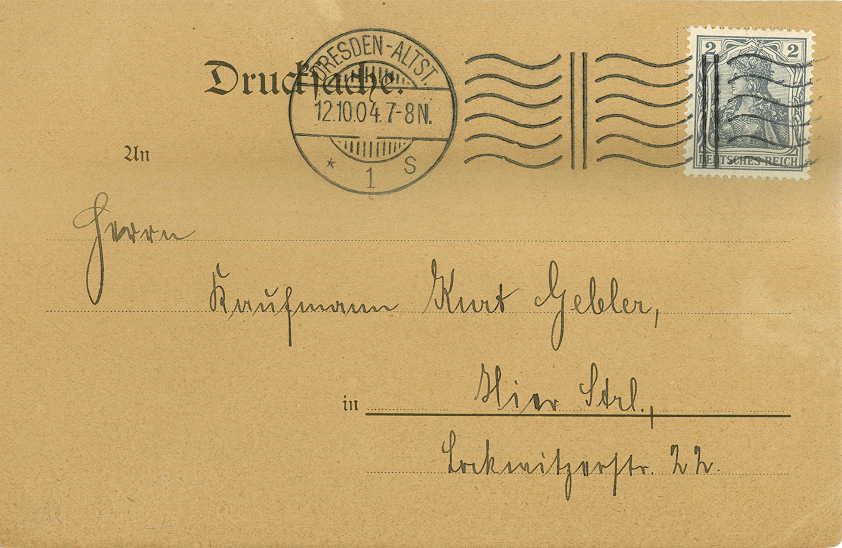 DRESDEN-ALTST.
Drucksache.
12.10.04.7-8N.
* 1 S
2 2
DEUTSCHES REICH
An
Herrn
Kaufmann Kurt Gebler,
in Hier Strl.,
Lockwitzerstr. 22.